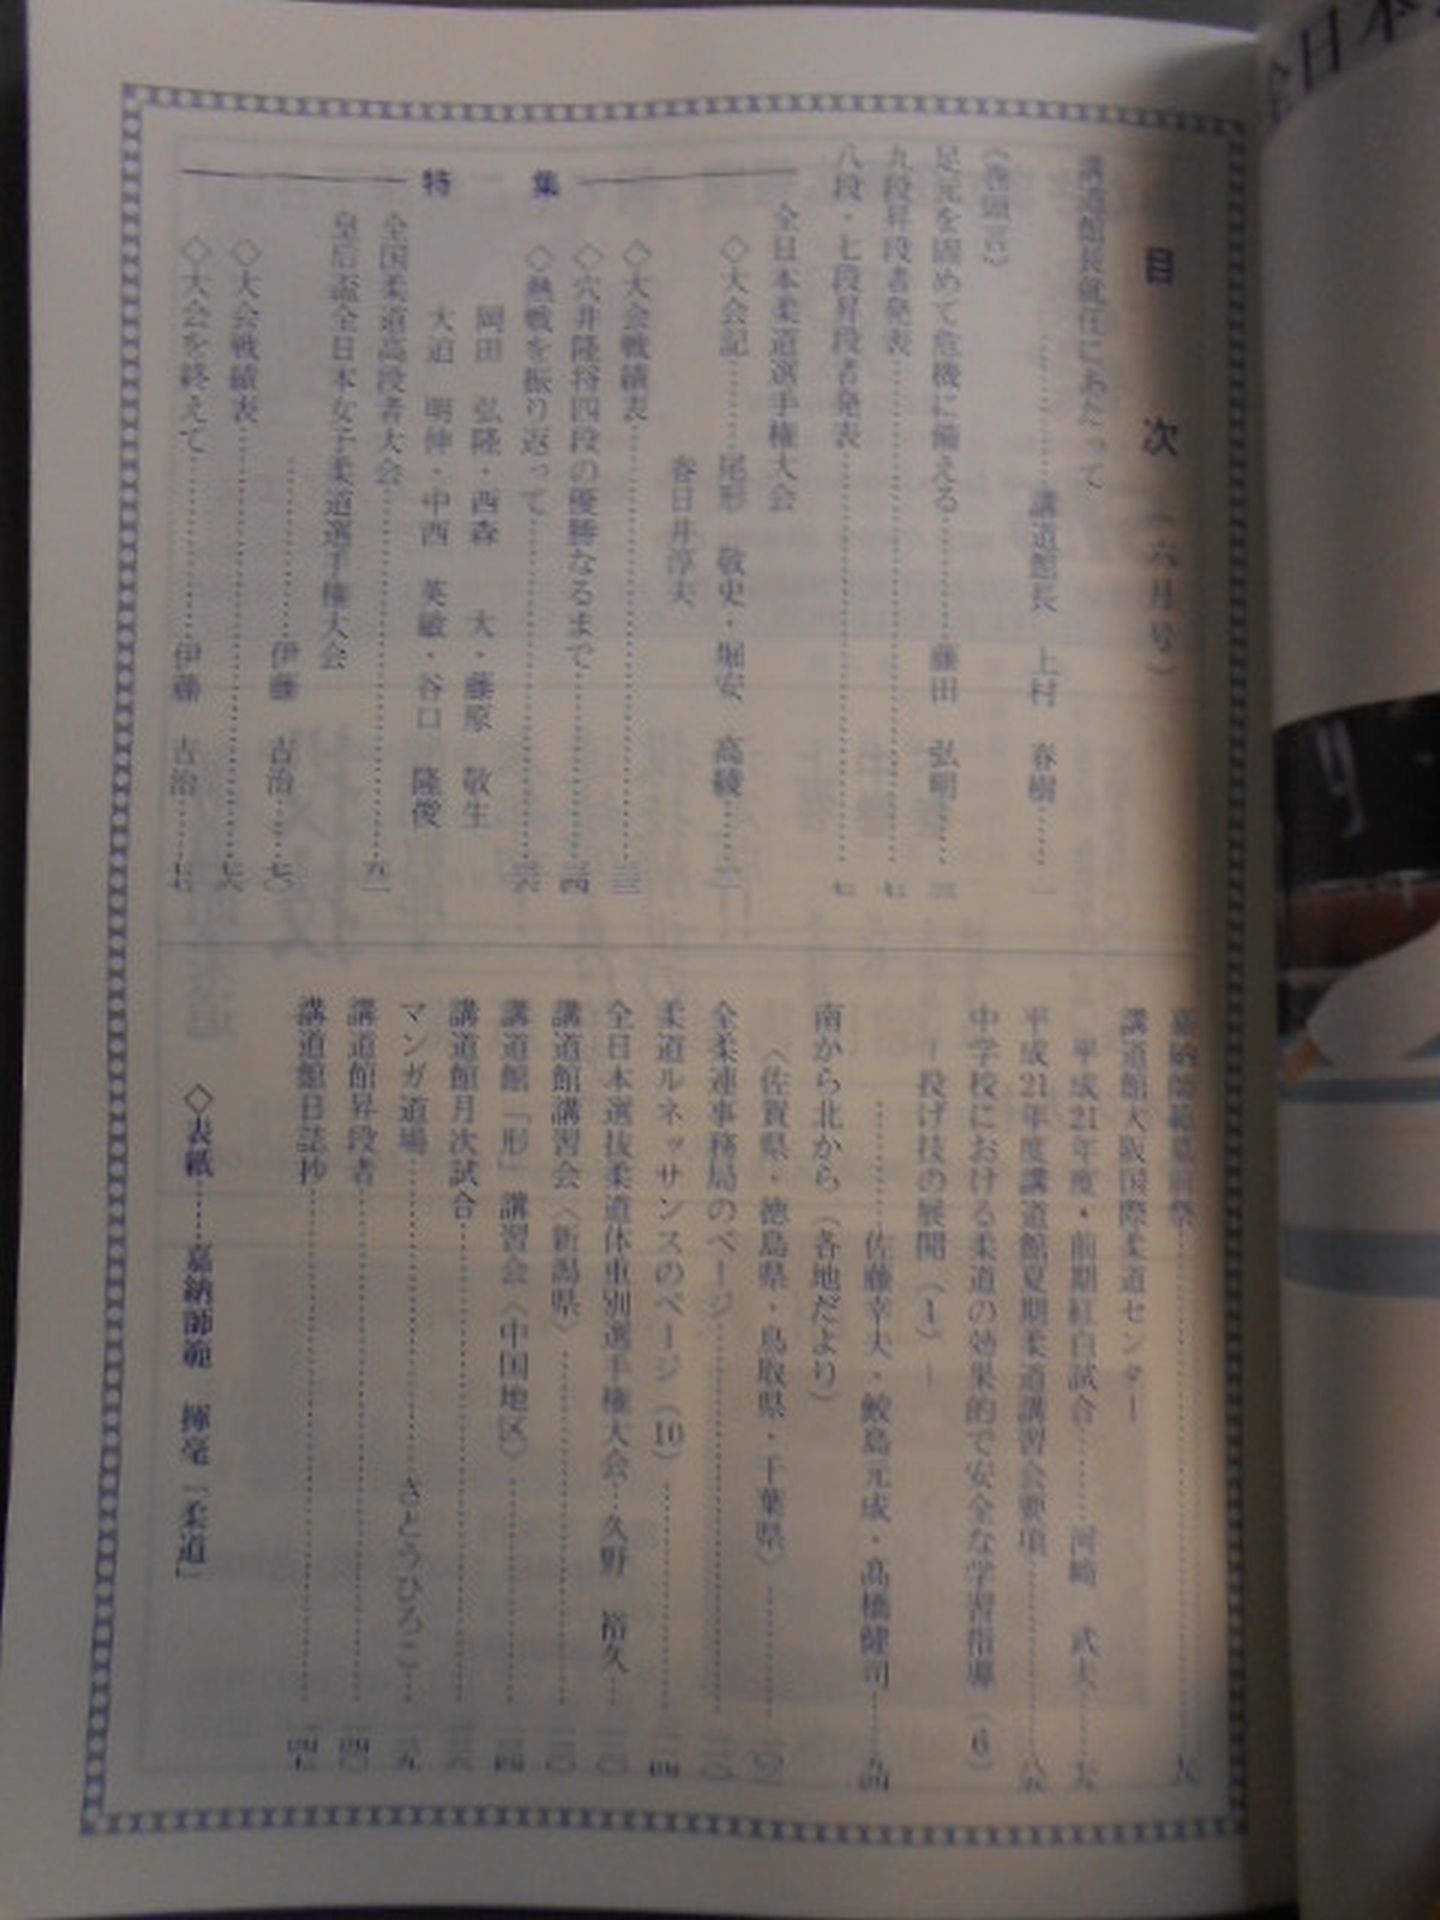 目次（六月号）
講道館長就任にあたって
講道館長 上村 春樹 一
〈巻頭言〉
足元を固めて危機に備える 藤田 弘明
九段昇段者発表
八段・七段昇段者発表
特集
全日本柔道選手権大会
◇大会記 尾形 敬史・堀安 高綾
春日井淳夫
◇大会戦績表
◇穴井隆将四段の優勝なるまで
◇熱戦を振り返って
岡田 弘隆・西森 大・藤原 敬生
大迫 明伸・中西 英敏・谷口 隆俊
全国柔道高段者大会
皇后盃全日本女子柔道選手権大会
伊藤 吉治
◇大会戦績表
◇大会を終えて 伊藤 吉治
嘉納師範墓前祭
講道館大阪国際柔道センター
平成21年度・前期紅白試合 河崎 武夫
平成21年度講道館夏期柔道講習会要項
中学校における柔道の効果的で安全な学習指導（6）
－投げ技の展開（1）－
佐藤幸夫・鮫島元成・高橋健司
南から北から（各地だより）
〈佐賀県・徳島県・鳥取県・千葉県〉
全柔連事務局のページ
柔道ルネッサンスのページ（10）
全日本選抜柔道体重別選手権大会 久野 裕久
講道館講習会〈新潟県〉
講道館「形」講習会〈中国地区〉
講道館月次試合
マンガ道場 さとうひろこ
講道館昇段者
講道館日誌抄
◇表紙 嘉納師範 揮毫「柔道」
全日本